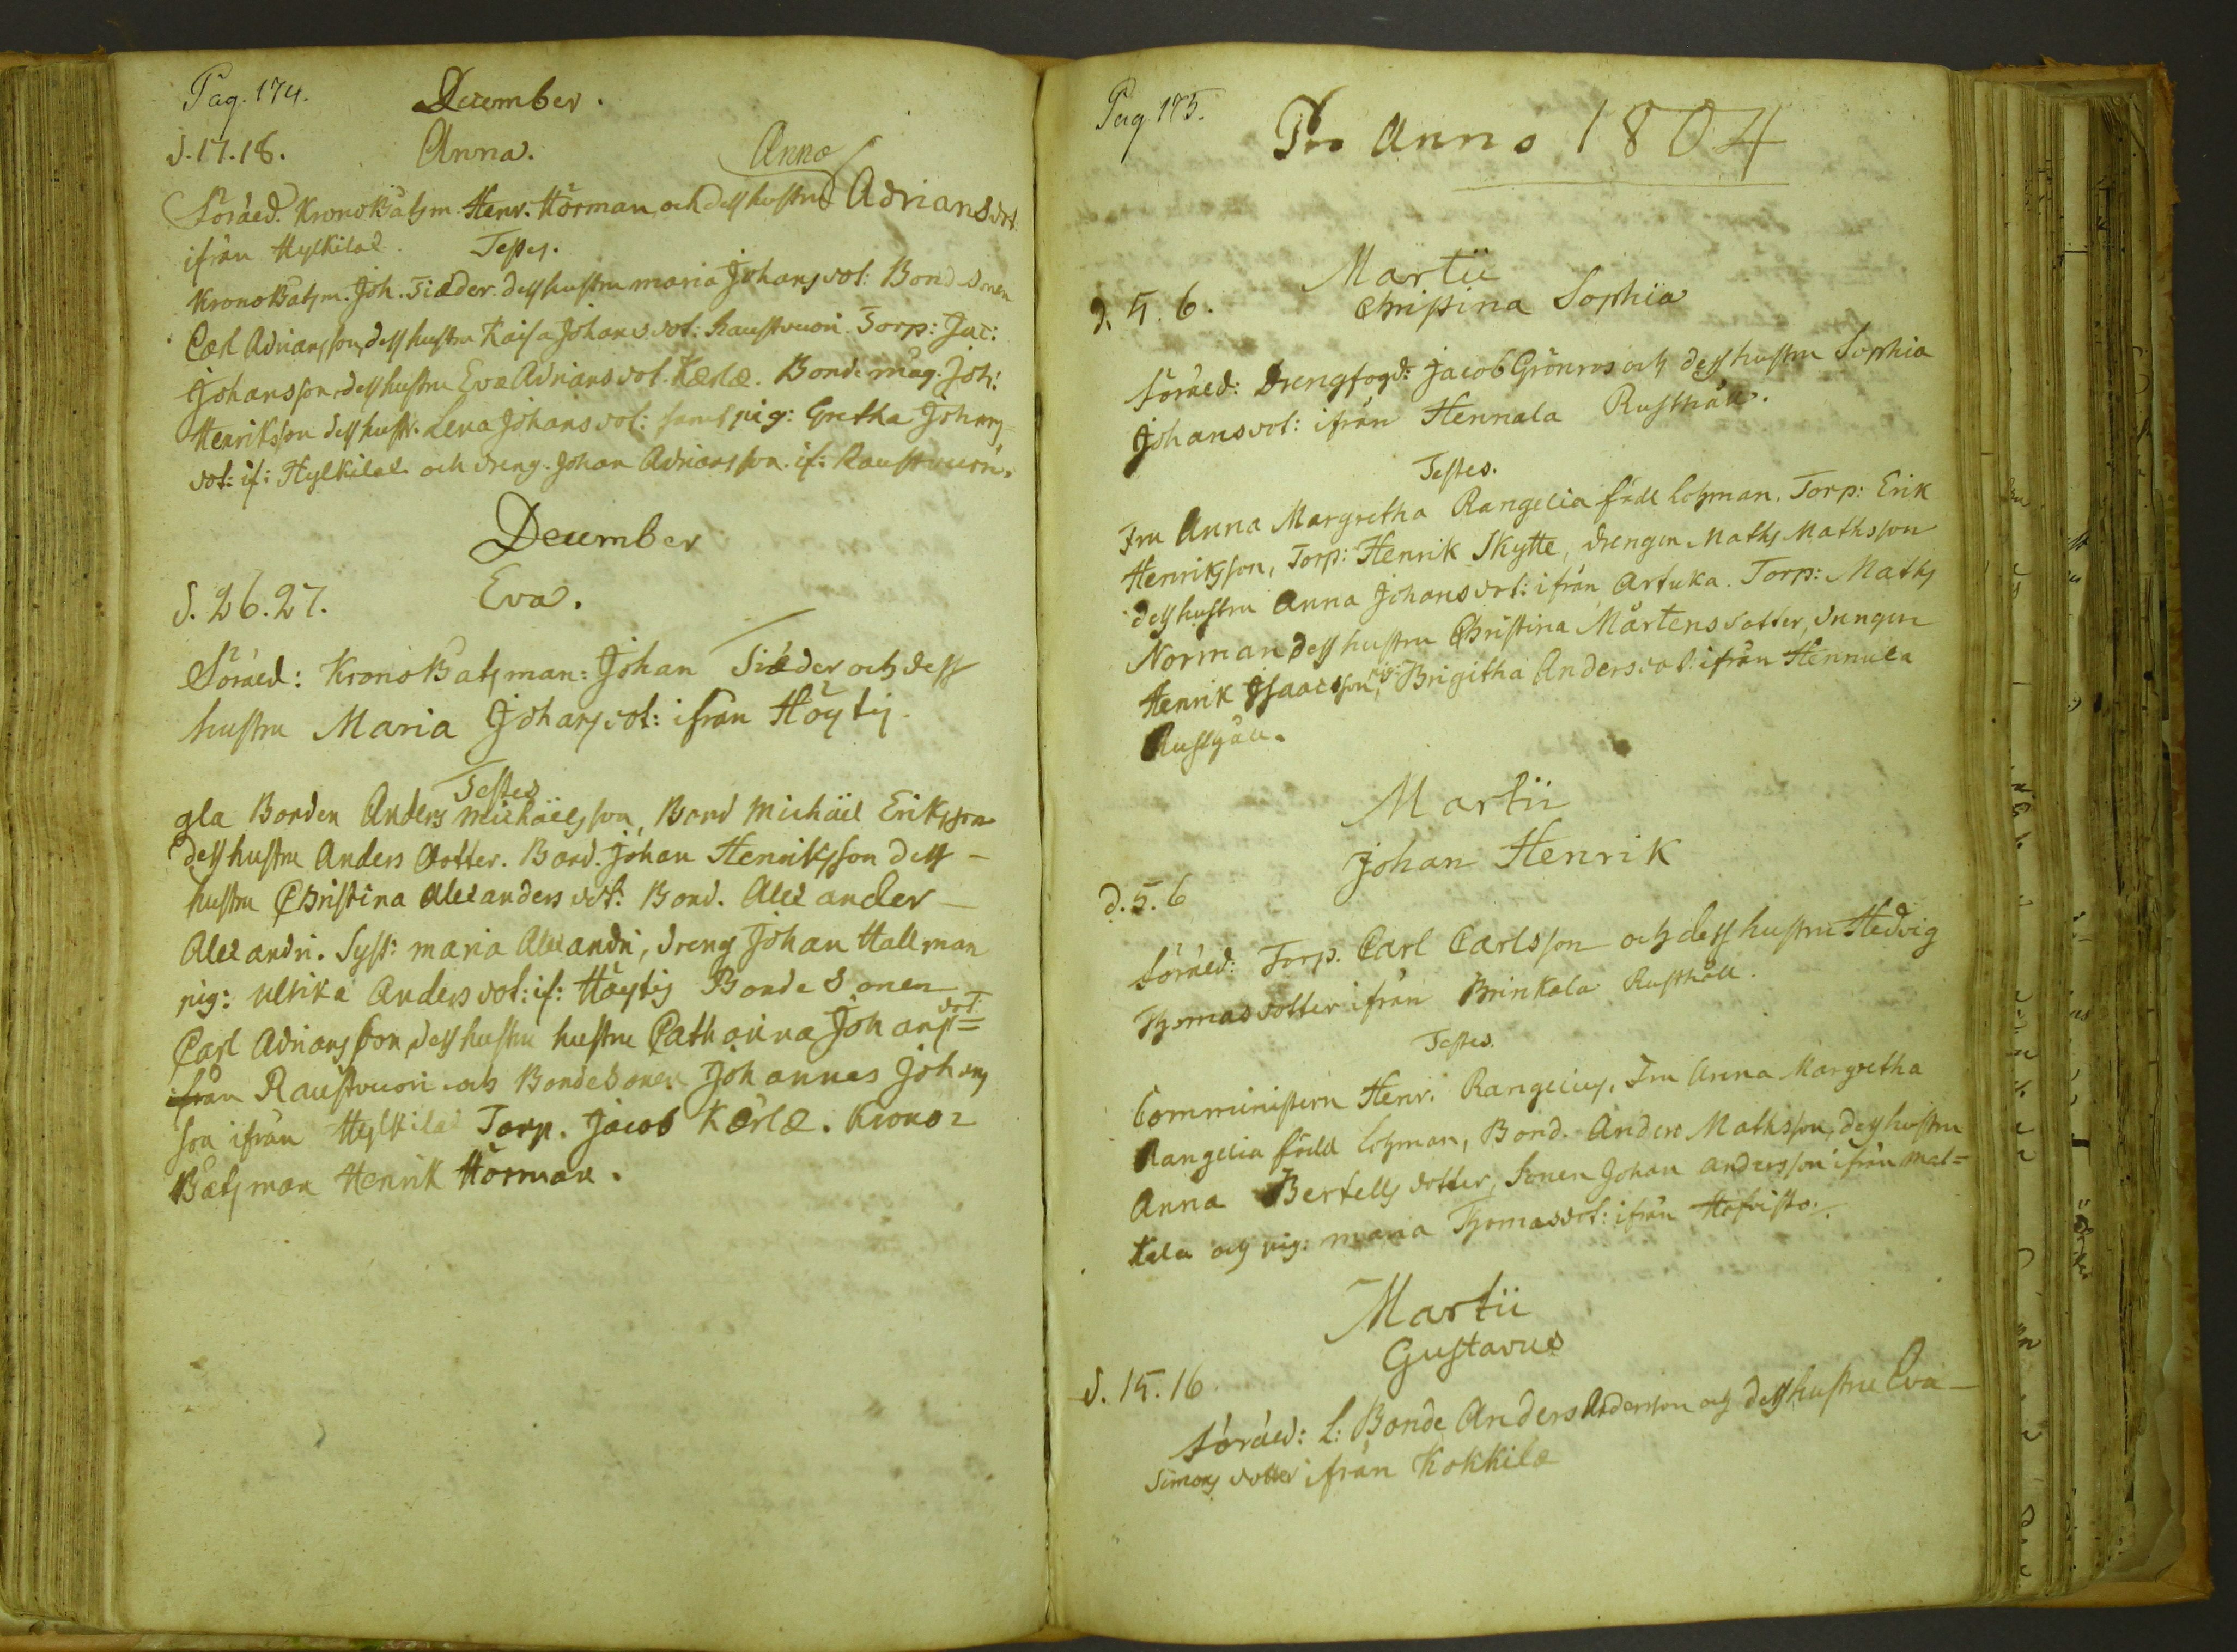 Pag. 174.
December.
d. 17. 18.
Anna.
Anna
Föräld. Krono Båtsm. Henr. Hörman, och dess hustru Adriansdot.
ifrån Hylkilæ. Testes.
Krono Båtsm. Joh. Tiæder. dess hustru maria Johansdot: Bondsonen
Carl Adriansson, dess hustru Kaisa Johansdot: Raustvuori. Torp: Jac:
Johansson, dess hustru Eva Adriansdot. Kærlæ. Bonde mag. Joh:
Henriksson dess hustr. Lena Johansdot: samt pig: Gretha Johans=
dot: if: Hylkilæ. och dreng. Johan Adriansson. if: Raustvuori.
December
d. 26. 27.
Eva.
Föräld: Krono Batsman: Johan Tiæder och dess
hustru Maria Johansdot: ifrån Höytis.
Testes
gla Bonden Anders Michäelsson, Bond Michäel Eriksson
dess hustru Anders dotter. Bond. Johan Henriksson dess –
hustru Christina Alexanders dot: Bond. Alexander –
Alexandri. Syst: maria Alexandri, dreng Johan Hallman
pig: Ulrika Andersdot: if: Höytis Bonde Sonen
Carl Adriansson, dess hustru hustru Catharina Johans= dot:
ifrån Raustvuori och Bondesonen Johannes Johans
son ifrån Hylkilæ Torp. Jacob Kærlæ. Krono=
Båtsman Henrik Hörman.
Pag. 175.
Pro Anno 1804
Martii
d. 5. 6.
Christina Sophia
Föräld: Drengfogd: Jacob Grönros och dess hustru Sophia
Johansdot: ifrån Hennala Rusthåll.
Testes.
Fru Anna Margretha Rangelia född Lohman. Torp: Erik
Henriksson, Torp: Henrik Skytte, drengen Maths Mathsson
dess hustru Anna Johansdot: ifrån Artuka. Torp: Maths
Norman dess hustru Christina Mårtensdotter, drengen
Henrik Isaacsson, pig: Brigitha Andersdot: ifrån Hennala
Rusthåll.
Martii
Johan Henrik
d. 5. 6
Föräld: Torp. Carl Carlsson och dess hustru Hedvig
Thomasdotter ifrån Brinkala Rusthåll.
Testes.
Comministern Henr: Rangelius, Fru Anna Margretha
Rangelia född Lohman, Bond. Anders Mathsson, dess hustru
Anna Bertells dotter, Sonen Johan Andersson ifrån Mal=
kela och pig: maria Thomasdot: ifrån Hofvista.
Martii
Gustavus
d. 15. 16
Föräld: L: Bonde Anders Andersson och dess hustru Eva –
Simons dotter ifrån Kokkila